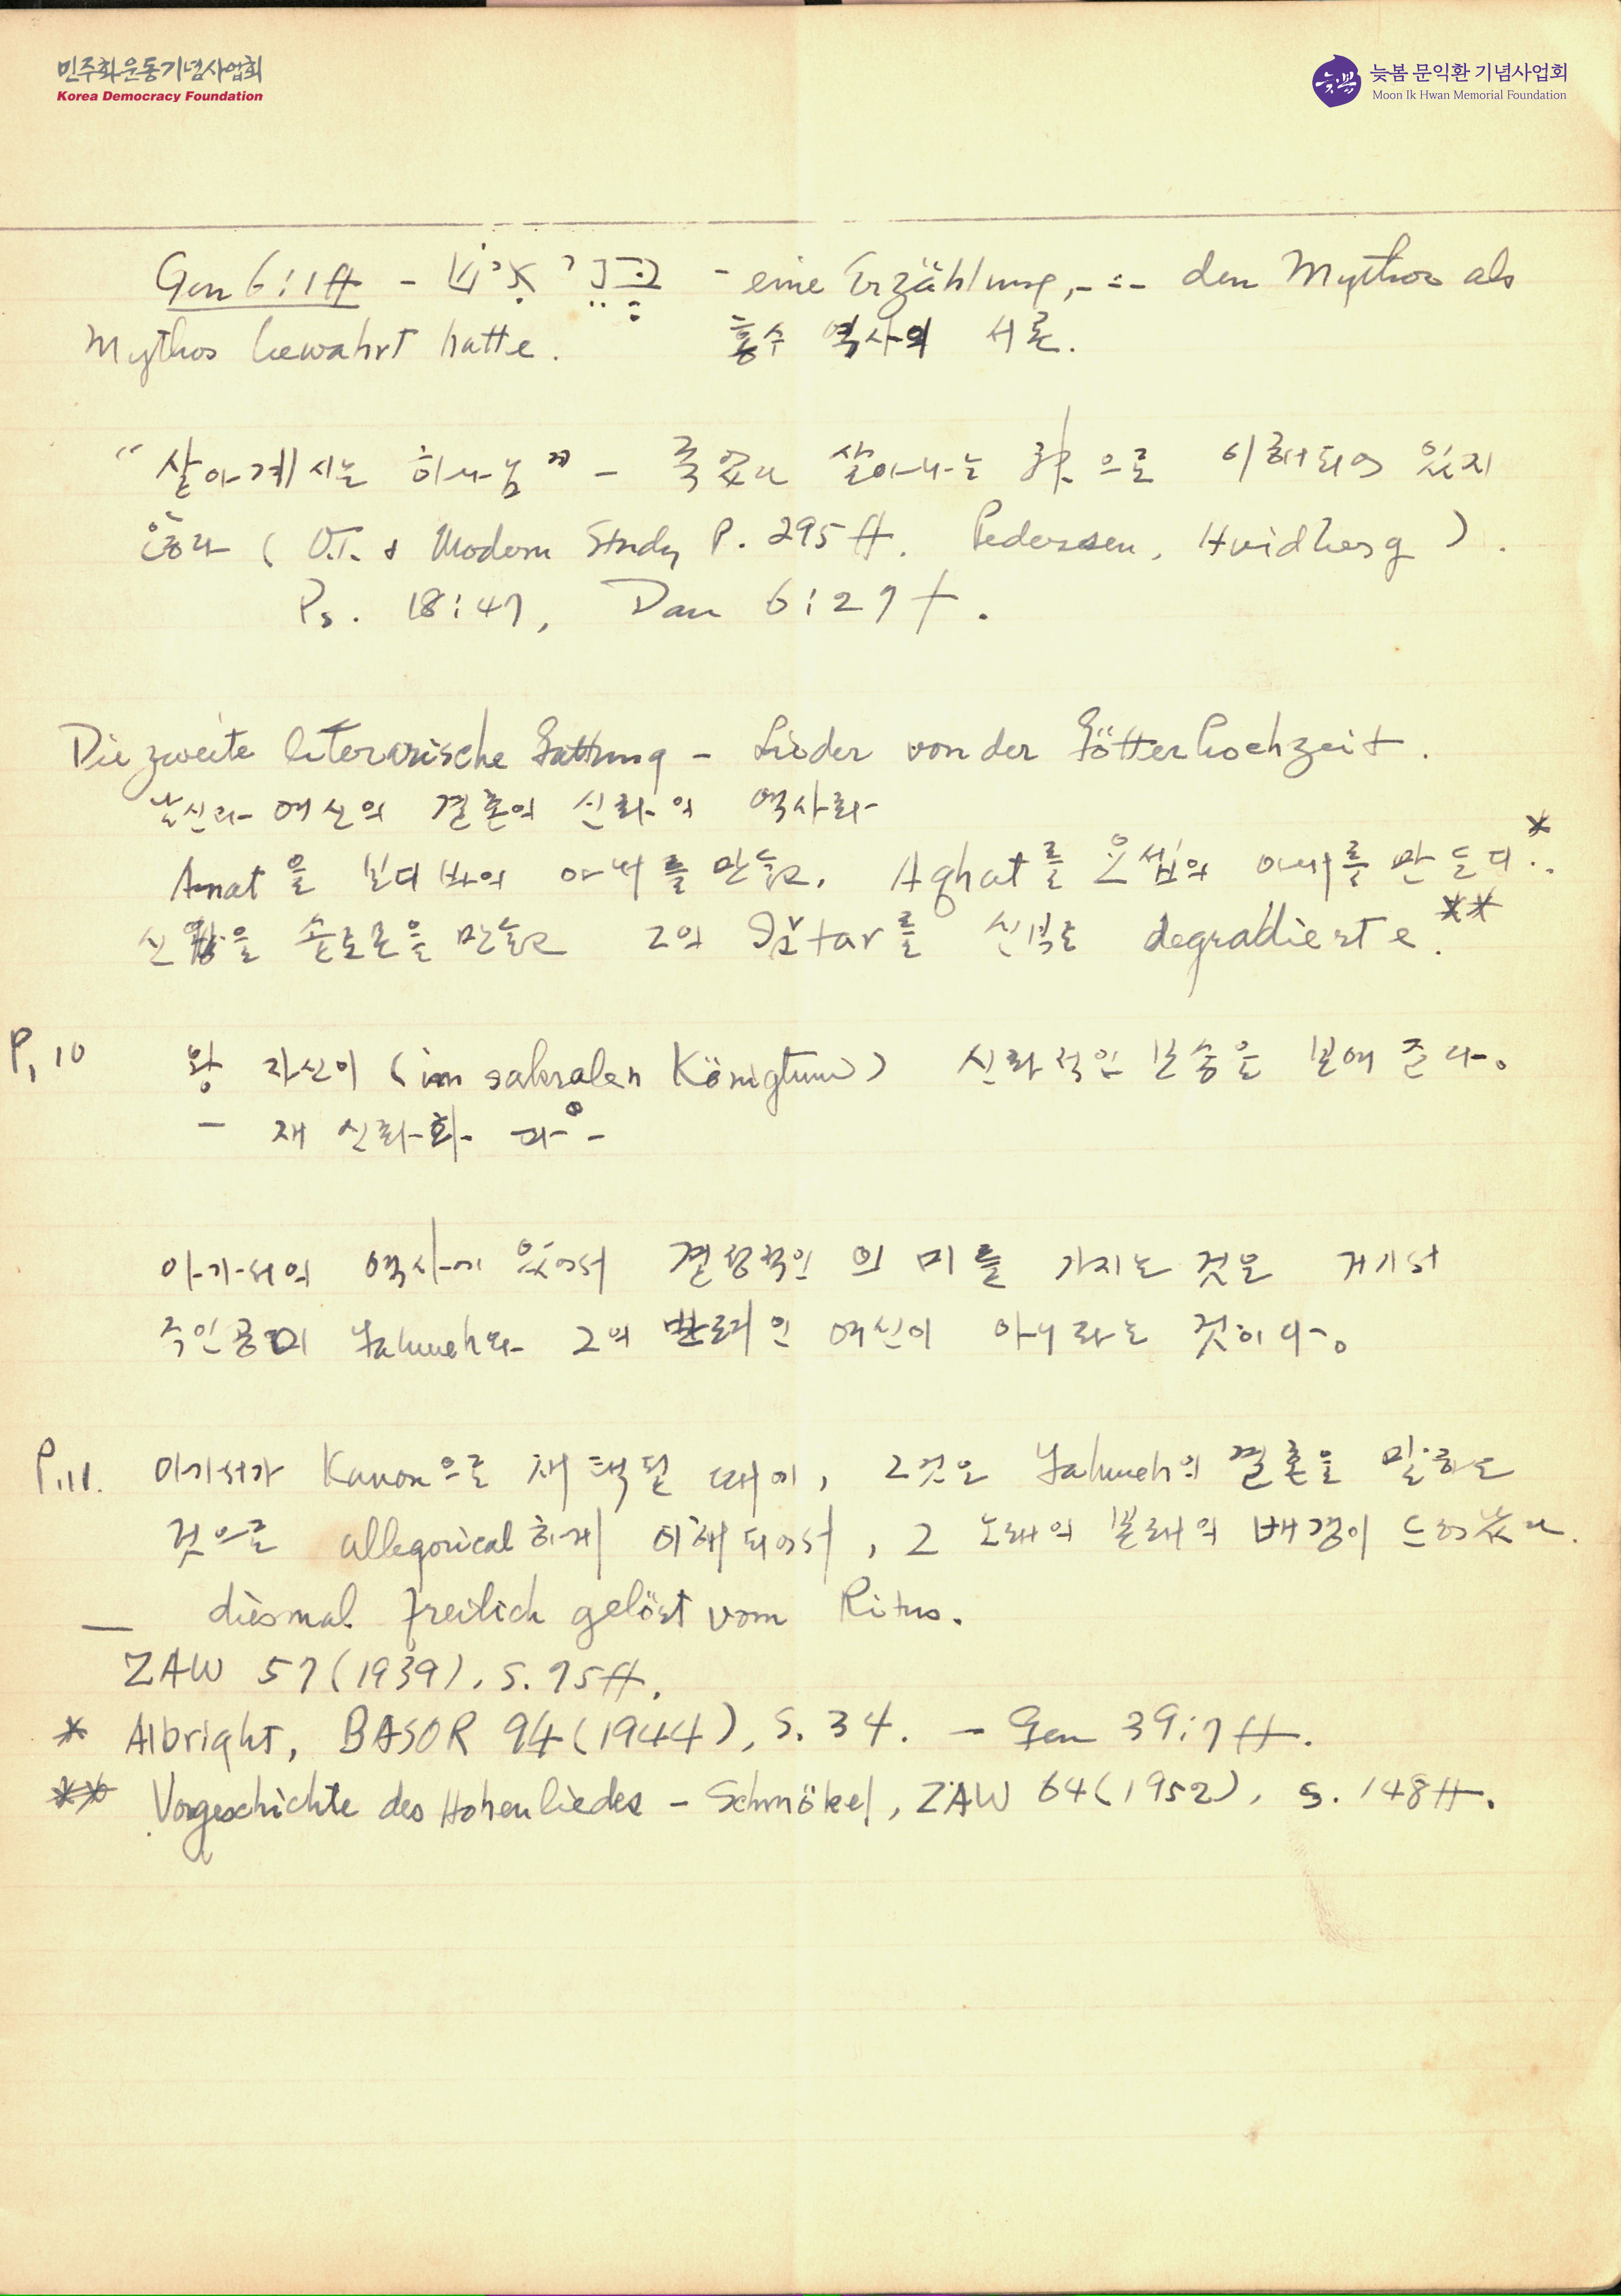 민주화운동기념사업회
Korea Democracy Foundation
늦봄 문익환 기념사업회
Moon Ik Hwan Memorial Foundation
Gen 6:1ff - - eine Erzählung, - : - den Mythos als
Mythos bewahrt hatte. 홍수 역사의 서론.
"살아계시는 하나님" - 죽었다 살아나는 神으로 이해되어 있지
않다 (O.T. & Modern Study P. 295 ff. Pedersen, Hvidberg).
Ps. 18:47, Dan 6:27f.
Die zweite literarische Gattung - Lieder von der Götterhochzeit.
남신과 여신의 결혼의 신화의 역사화
Anat을 보디바의 아내를 만들고, Aqhat를 요셉의 아내를 만든다.*
신랑을 솔로몬을 만들고 그의 Ištar를 신부로 degradierte.**
P. 10 왕 자신이 (im sakralen Königtum) 신화적인 모습을 보여 준다.
- 재 신화화 -
아가서의 역사에 있어서 결정적인 의미를 가지는 것은 거기서
주인공이 Yahweh와 그의 인 여신이 아니라는 것이다.
P. 11. 아가서가 Kanon으로 채택될 때에, 그것은 Yahweh의 결혼을 말하는
것으로 allegorical하게 이해되어서, 그 노래의 본래의 배경이
— diesmal freilich gelöst vom Ritus.
ZAW 57 (1939), S. 75ff.
* Albright, BASOR 94 (1944), S. 34. - Gen 39:7ff.
** Vorgeschichte des Hohenliedes - Schmökel, ZAW 64 (1952), S. 148ff.